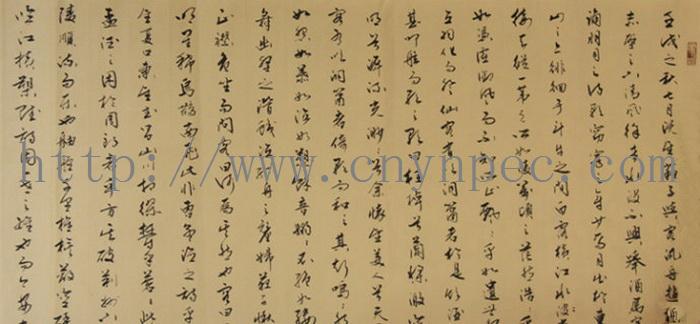 壬戌之秋七月既望蘇子與客汎舟遊
赤壁之下清風徐來水波不興舉酒屬客
誦明月之詩歌窈窕之章少焉月出於東
山之上徘徊于斗牛之間白露橫江水光
接天縱一葦之所如凌萬頃之茫然浩浩乎
如馮虛御風而不知其所止飄飄乎如遺世
立羽化而登仙客有吹洞簫者於是飲酒
甚扣舷而歌之歌曰桂棹兮蘭槳擊空
明兮泝流光渺渺兮余懷望美人兮天
客有吹洞簫者倚歌而和之其聲嗚嗚然
如怨如慕如泣如訴餘音嫋嫋不絕如縷
舞幽壑之潛蛟泣孤舟之嫠婦蘇子愀
正襟危坐而問客曰何為其然也客曰
明星稀烏鵲南飛此非曹孟德之詩乎
望夏口東望武昌山川相繆鬱乎蒼蒼此
孟德之困於周郎者乎方其破荊州下
陵順流而東也舳艫千里旌旗蔽空釃
臨江橫槊賦詩固一世之雄也而今安在
http://www.cnynpec.com